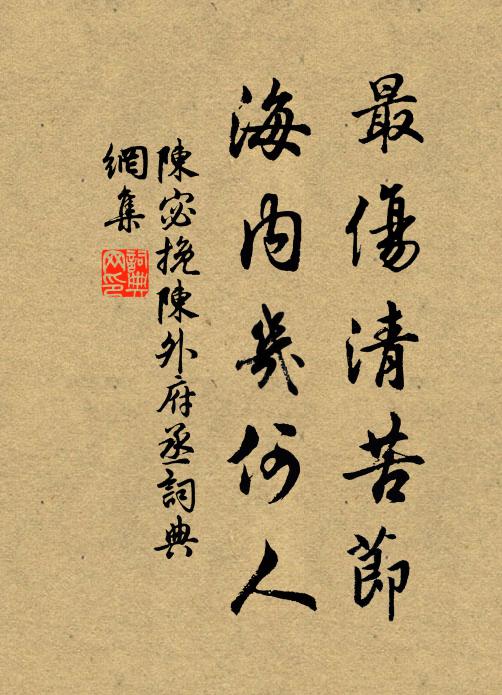 最傷清苦節
海內幾何人
陳宓挽陳外府丞詞典
網集
詞典網印